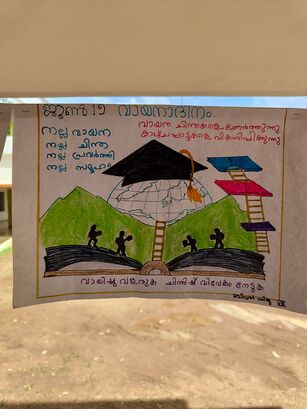 ജൂൺ 19 വായനാദിനം.
നല്ല വായന
നല്ല ചിന്ത
നല്ല പ്രവർത്തി
നല്ല സമൂഹം
വായന ചിന്തകളെ ഉണർത്തുന്നു
കാഴ്ചപ്പാടുകളെ വികസിപ്പിക്കുന്നു
വായിച്ചു വളരുക ചിന്തിച്ച് വിവേകം നേടുക